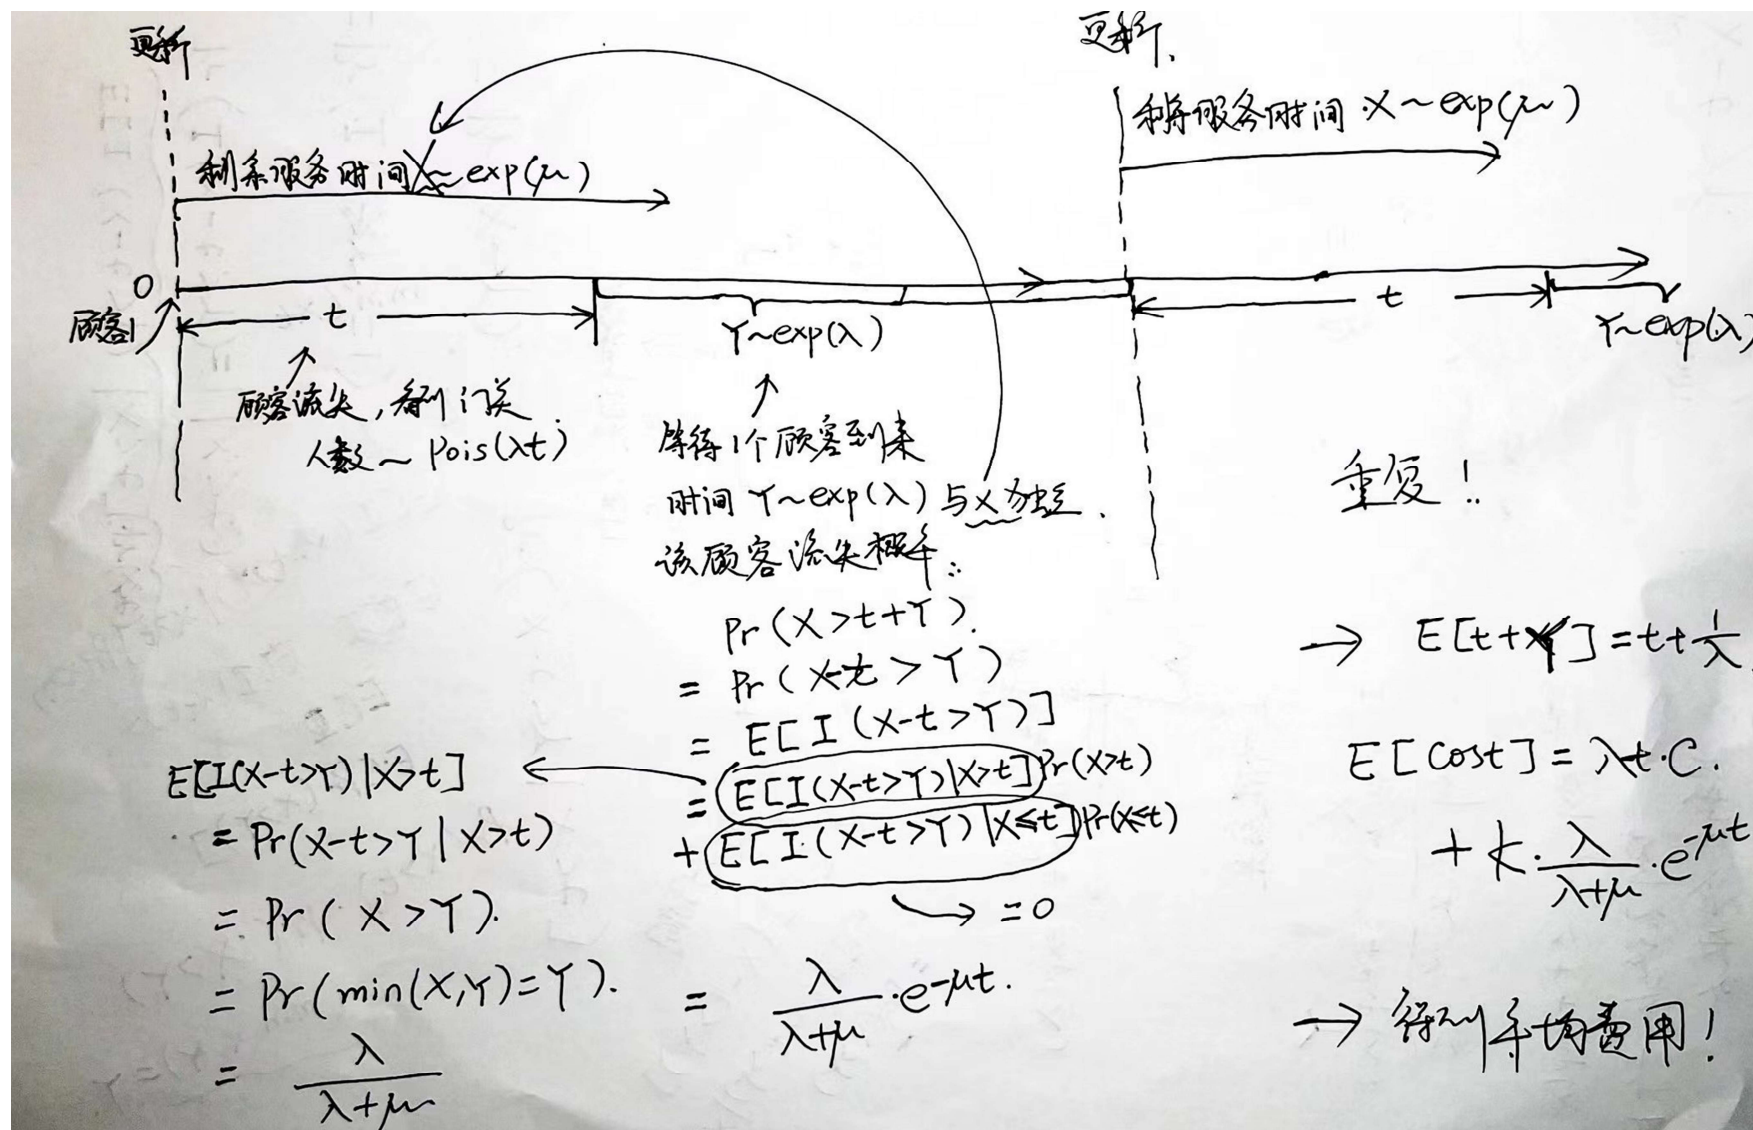 更新
更新.
剩余服务时间 X~exp(μ)
剩余服务时间 X~exp(μ)
0
顾客1
t
Y~exp(λ)
t
Y~exp(λ)
顾客流失,看到门关
人数~Pois(λt)
等待1个顾客到来
时间 Y~exp(λ) 与X独立.
该顾客流失概率:
重复!!
Pr(X>t+Y).
= Pr(X-t>Y)
= E[I(X-t>Y)]
= E[I(X-t>Y)|X>t]Pr(X>t)
+ E[I(X-t>Y)|X≤t]Pr(X≤t)
→ =0
= λ/(λ+μ) · e^{-μt}.
E[I(X-t>Y)|X>t]
= Pr(X-t>Y|X>t)
= Pr(X>Y).
= Pr(min(X,Y)=Y).
= λ/(λ+μ)
→ E[t+Y]=t+1/λ.
E[cost]=λt·C.
+ K·λ/(λ+μ)·e^{-μt}
→ 得到平均费用!